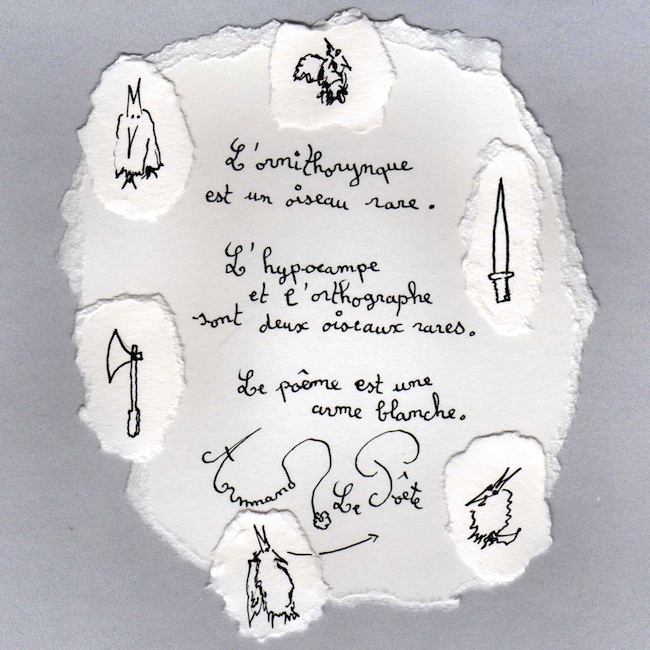 L'ornithorynque
est un oiseau rare.
L'hypocampe
et l'orthographe
sont deux oiseaux rares.
Le poême est une
arme blanche.
Armand
Le Poête